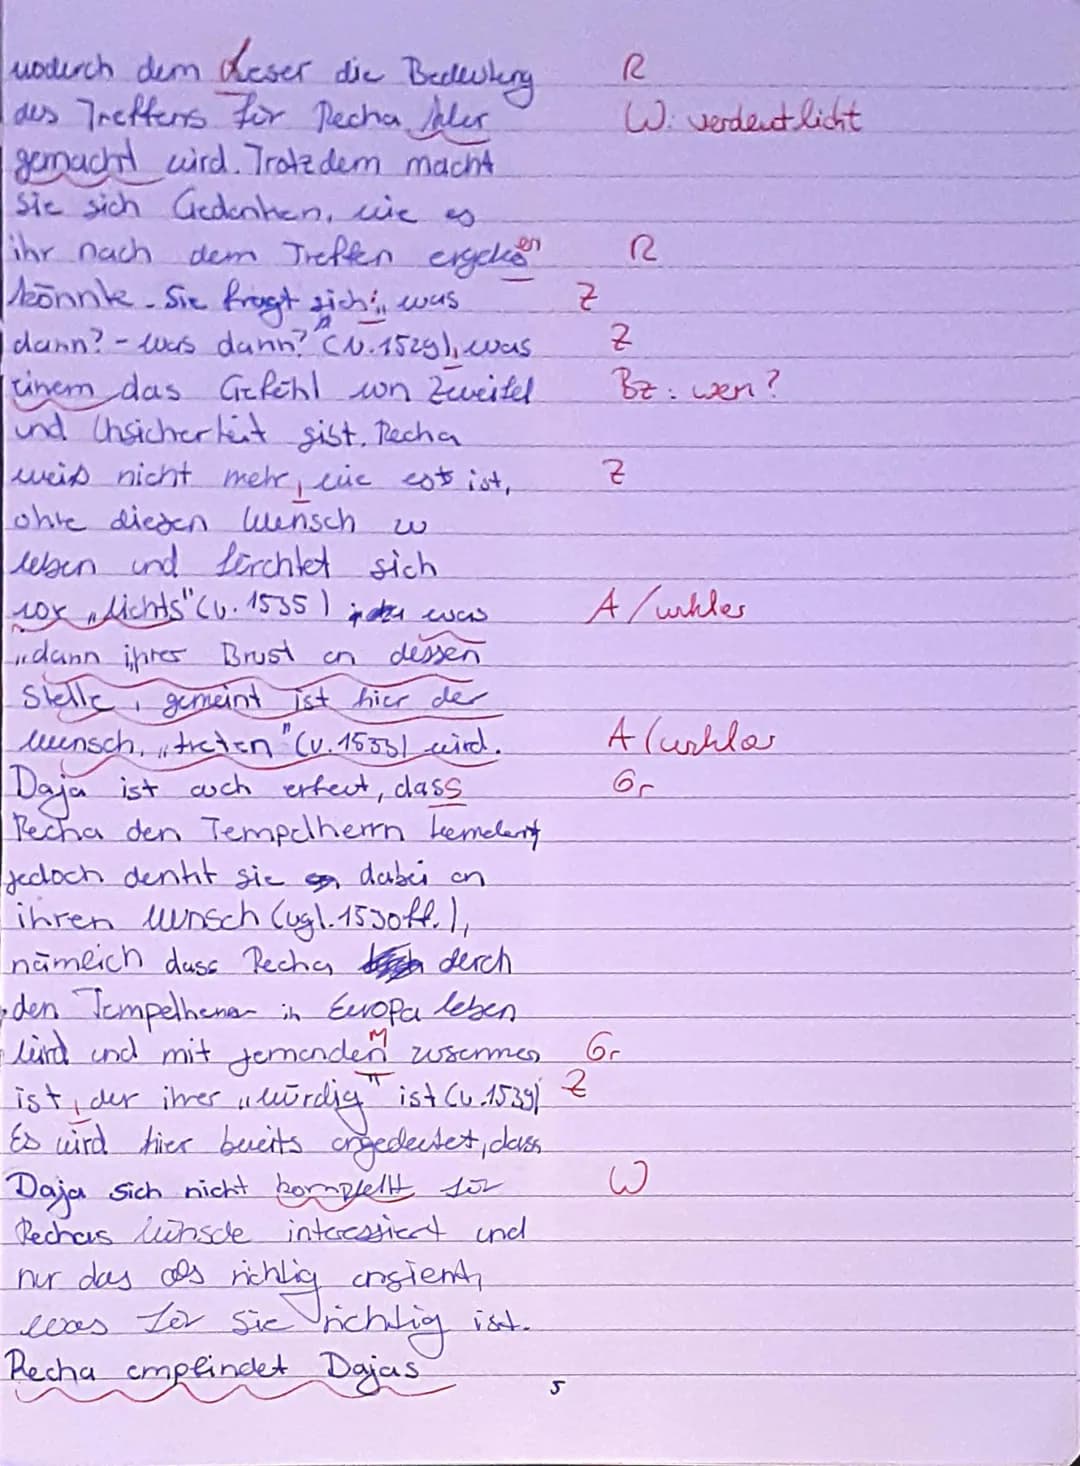 wodurch dem Leser die Bedeutung R
des Treffens für Recha klar W: verdeutlicht
gemacht wird. Trotzdem macht
sie sich Gedanken, wie es
ihr nach dem Treffen ergehen R
könnte. Sie fragt sich: „was Z
dann? - was dann?" (V. 1529), was Z
einem das Gefühl von Zweifel Bz: wen?
und Unsicherheit gibt. Recha
weiß nicht mehr, wie es ist, Z
ohne diesen Wunsch zu
leben und fürchtet sich
vor „Nichts" (V. 1535) was A/unklar
„dann ihrer Brust an dessen
Stelle, gemeint ist hier der
Wunsch, „treten" (V. 1533) wird. A/unklar
Daja ist auch erfreut, dass Gr
Recha den Tempelherrn
jedoch denkt sie dabei an
ihren Wunsch (vgl. 1530ff.),
nämlich dass Recha durch
den Tempelherrn in Europa leben
wird und mit jemandem zusammen Gr
ist, der ihrer „würdig" ist (V. 1539) Z
Es wird hier bereits angedeutet, dass
Daja sich nicht komplett für W
Rechas Wünsche interessiert und
nur das als richtig ansieht,
was für sie richtig ist.
Recha empfindet Dajas
5